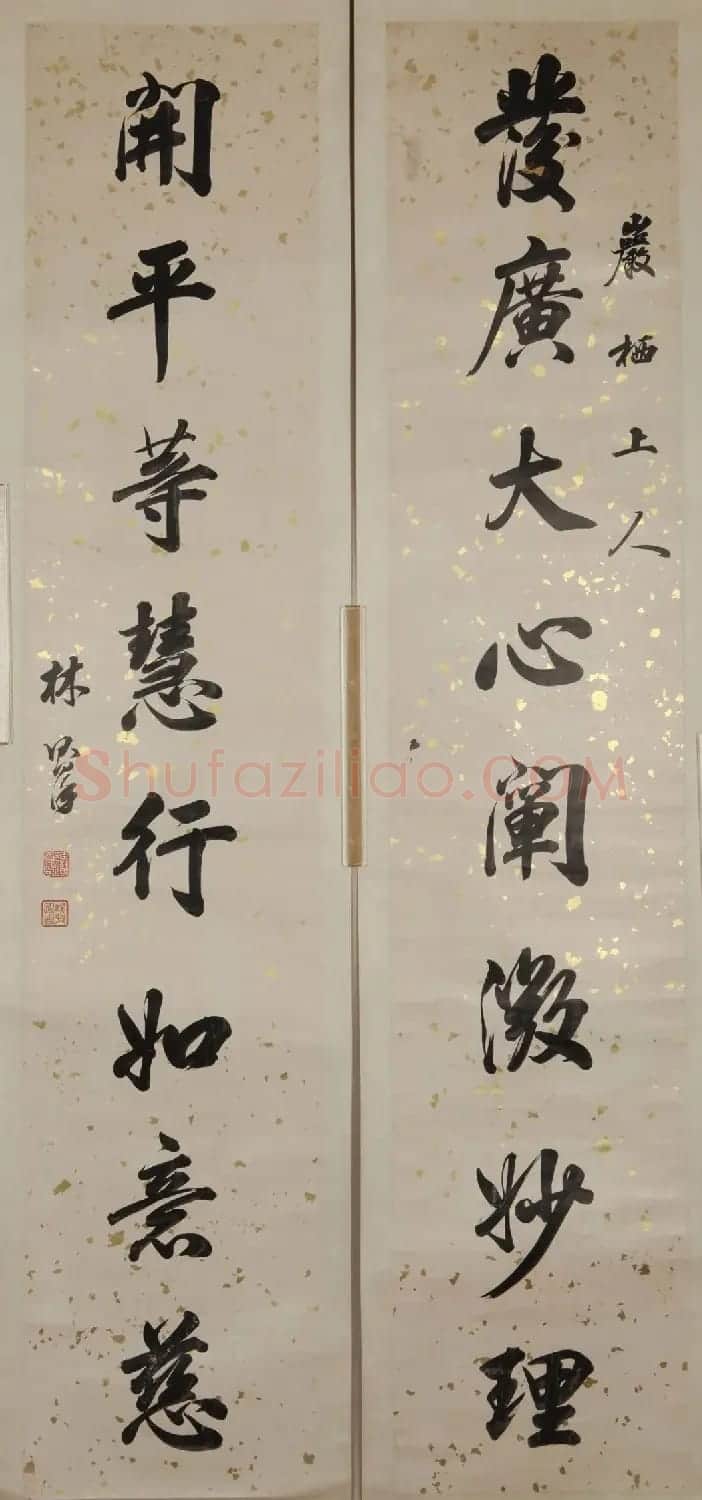 巖栖上人
發廣大心闡微妙理
開平等慧行如意慈
林則徐
Shufaziliao.COM